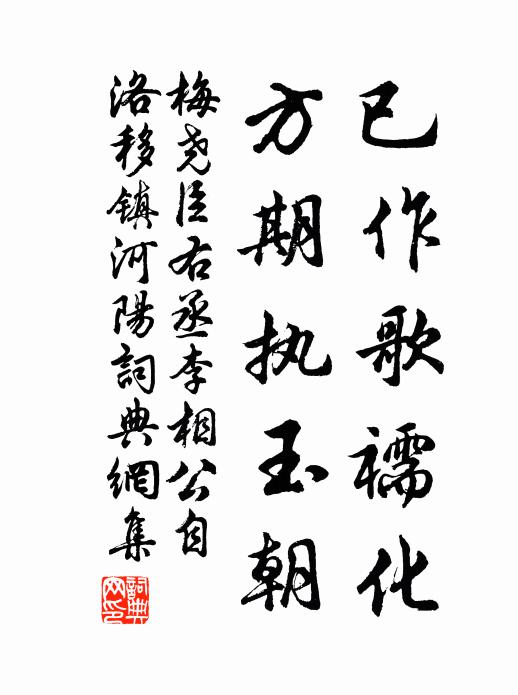 已作歌襦化
方期执玉朝
梅尧臣右丞李相公自
洛移镇河陽詞典網集
詞典網印